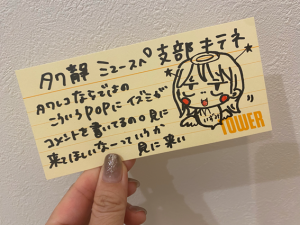 タワ静 ミュースペ 支部 キテネ
タワレコならではの
こういうPOPに イズミが
コメントを書いてるの見に
来てほしいなーっていうか
見に来い
いずみ
TOWER